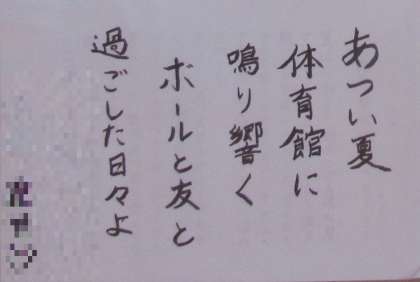 あつい夏
体育館に
鳴り響く
ボールと友と
過ごした日々よ